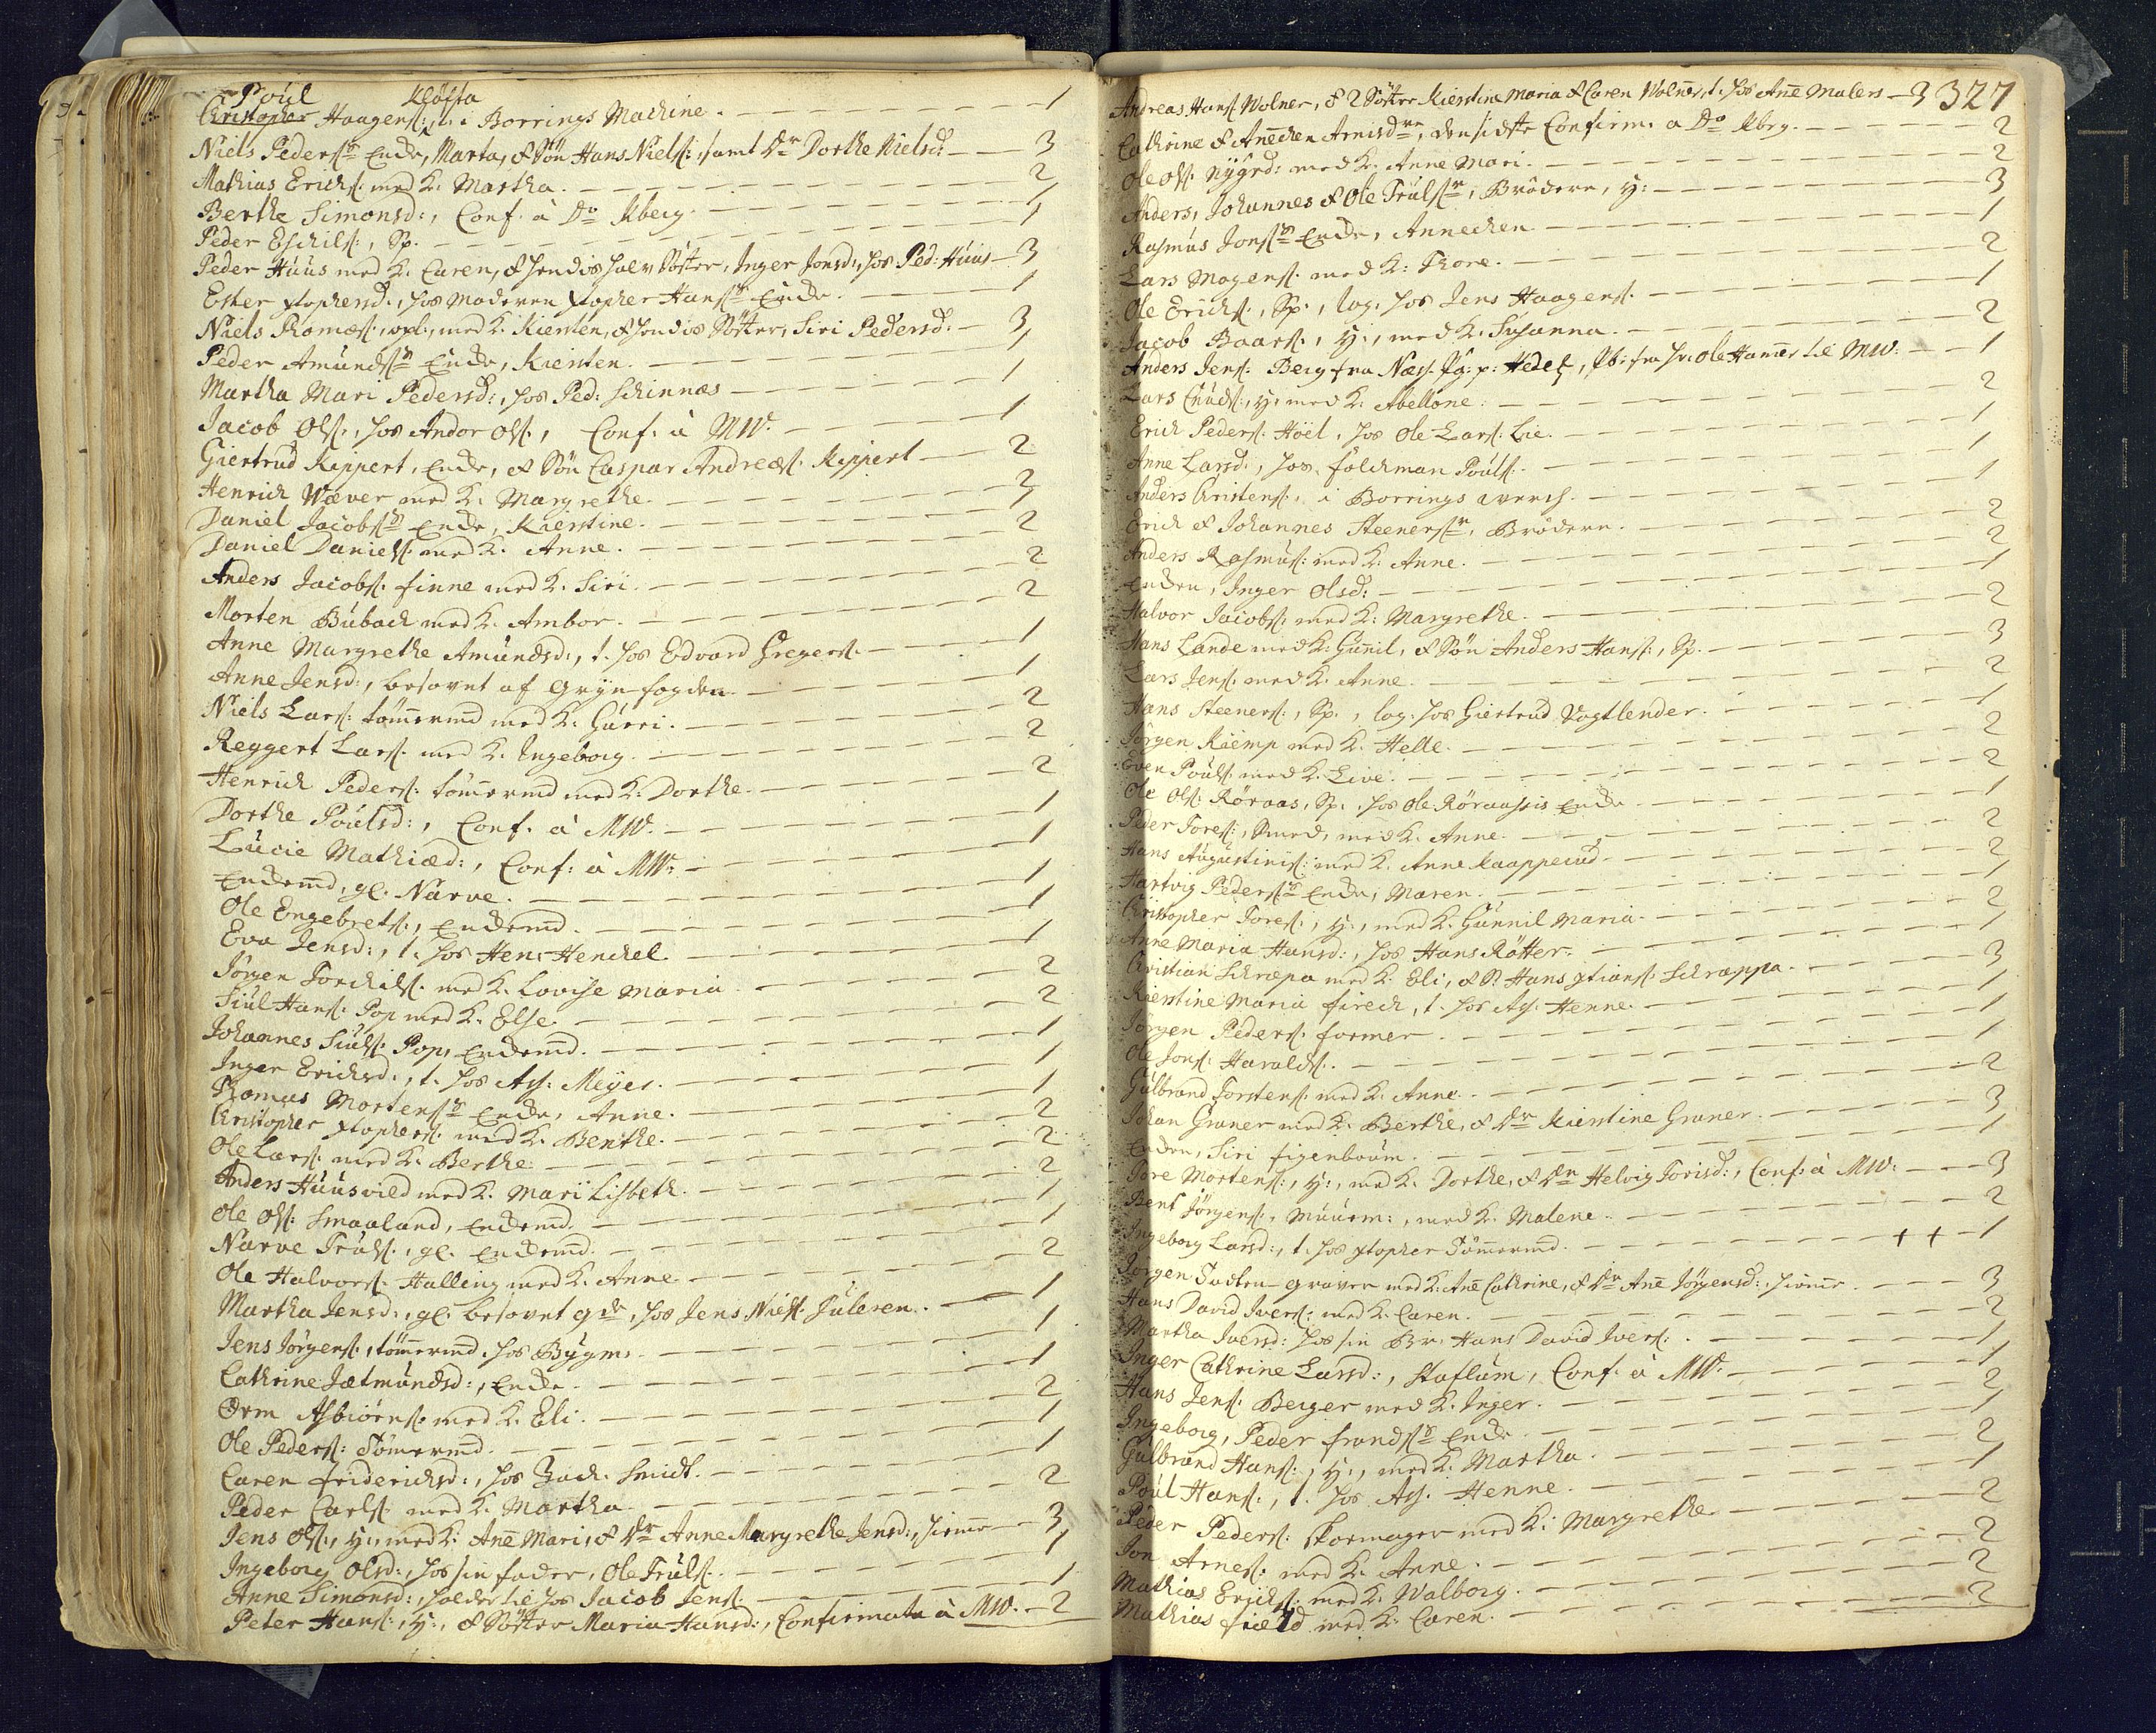 Poul Kløfta
Christopher Haagens: t. i Borrings Machine. 1
Niels Peders:s Encke, Marta, & Søn Hans Niels:, samt Dr Dorthe Nielsd: 3
Mathias Erichs: med K. Martha. 2
Berthe Simonsd:, Conf. à Do Kberg. 1
Peder Eschils:, Sp. 1
Peder Huus med K. Caren, & hendis halv Søster, Inger Jonsd:, hos Ped: Huus 3
Ester xtophersd:, hos Moderen xtopher Hans:s Encke. 1
Niels Thomæs:, opl:, med K. Kiersten, & hendis Søster, Siri Pedersd: 3
Peder Amunds:s Encke, Kiersten. 1
Martha Mari Pedersd:, hos Ped: Schinnæs 1
Jacob Ols:, hos Andor Ols:, Conf. à MW. 1
Giertrud Kippert, Encke, & Søn Caspar Andreæs: Kippert 2
Henrich Wæver med K. Margrethe. 2
Daniel Jacobs:s Encke, Kierstine. 1
Daniel Daniels: med K. Anne. 2
Anders Jacobs: finne med K. Siri. 2
Morten Bubach med K. Ambor. 2
Anne Margrethe Amundsd:, t. hos Edvard Gregers: 1
Anne Jensd:, besovet af Gryn fogden 1
Niels Lars: tømmermd med K. Gurri. 2
Reggert Lars: med K. Ingeborg. 2
Henrich Peders: tømmermd med K. Dorthe. 2
Dorthe Poulsd:, Conf. à MW. 1
Lucie Mathiæd:, Conf: à MW: 1
Enckemd, gl. Narve. 1
Ole Engebrets:, Enckemd. 1
Eva Jensd:, t. hos Hen: Henckel. 1
Jørgen Torchils: med K. Lovise Maria 2
Siul Hans: Pop med K. Else. 2
Johannes Siuls: Pop, Enckemd. 1
Inger Erichsd:, t. hos Ass: Meyer. 1
Thomas Mortens:s Encke, Anne. 1
Christopher xtophers: med K. Benthe. 2
Ole Lars: med K. Berthe. 2
Anders Huusvild med K. Mari Lisbeth. 2
Ole Ols: Smaaland, Enckemd. 1
Narve Truls:, gl. Enckemd. 1
Ole Halvors: Halling med K. Anne. 2
Martha Jensd:, gl. besovet qde, hos Jens Niels: Juleren. 1
Jens Jørgens:, tømmermd. hos Bygm: 1
Cathrine Jætmundsd:, Encke. 1
Orm Asbiørns: med K. Eli. 2
Ole Peders: Tømmermd. 1
Caren friderichsd:, hos Zach: Smidt. 1
Peder Carls: med K. Martha. 2
Jens Ols:, H:, med K: Ane Mari, & Dr Anne Margrethe Jensd:, hiemme 3
Ingeborg Olsd:, hos sin fader, Ole Truls: 1
Anne Simonsd:, holder til hos Jacob Jens: 1
Peter Hans:, H:, & Søster Maria Hansd:, Confirmata à MW. 2
Andreas Hans: Wolner, & 2 Søstre Kierstine Maria & Caren Wolner, t. hos Ane Malers 3 327
Cathrine & Anecken Arnisdre, den sidste Confirm. a Do Kbrg. 2
Ole Ols: Nygrd: med K. Anne Mari. 2
Anders, Johannes & Ole Truls:r, Brødere, H: 3
Rasmus Jons:s Encke, Annecken 1
Lars Mogens: med K: Thore. 2
Ole Erichs:, Sp., log. hos Jens Haagens: 1
Jacob Baars:, H:, med K. Susanna. 2
Anders Jens: Berg fra Næs: Pg: p: Hedel, Pb: fra Hr: Ole Hamer til MW: 1
Lars Cnuds:, H, med K. Abellone. 2
Erich Peders: Høel, hos Ole Lars: Lie. 1
Anne Larsd:, hos folchman Pouls: 1
Anders Christens:, i Borrings werch. 1
Erich & Johannes Steeners:r, Brødere. 2
Anders Rasmus: med K. Anne. 2
Encken, Inger Olsd: 1
Halvor Jacobs: med K: Margrethe. 2
Hans Lande med K: Gunil, & Søn Anders Hans:, Sp. 3
Lars Jens: med K. Anne. 2
Hans Steeners:, Sp., log. hos Giertrud Vogtlender. 1
Jørgen Kiemp med K. Helle. 2
Even Pouls: med K. Live. 2
Ole Ols: Røraas, Sp., hos Ole Røraassis Encke 1
Peder Tores:, Smed, med K. Anne. 2
Hans Augustinis: med K. Anne Kaappeiud. 2
Hartvig Peders:s Encke, Maren. 1
Christopher Tores:, H:, med K. Gunnil Maria. 2
Anne Maria Hansd:, hos Hans Røtter: 1
Christian Schræpa med K. Eli, & S: Hans xtians: Schræppa. 3
Kierstine Maria firech, t. hos Ass. Henne. 1
Jørgen Peders: former 1
Ole Jons: Haralds: 1
Gulbrand Torstens: med K. Anne. 2
Johan Graner med K. Berthe, & Dr Kierstine Graner. 3
Encken, Siri figenboum. 1
Tore Mortens:, H:, med K. Dorthe, & Dr Helvig Torisd:, Conf: à MW: 3
Bent Jørgens:, Muurm:, med K. Malene. 2
Ingeborg Larsd:, t. hos xtopher Tømmermd. + + 1
Jørgen Sadten graver med K: Ane Cathrine, & Dr Ane Jørgensd:, hiemme 3
Hans David Ivers: med K. Caren. 2
Martha Iversd: hos sin Br: Hans David Ivers: 1
Inger Cathrine Larsd:, Staflum, Conf. à MW. 1
Hans Jens: Berger med K. Inger. 2
Ingeborg, Peder frands:s Encke 1
Gulbrand Hans:, H:, med K. Martha. 2
Poul Hans:, t. hos Ass. Henne. 1
Peder Peders: Skormager med K: Margrethe. 2
Jon Arnes: med K. Anne. 2
Mathias Erichs: med K. Walborg. 2
Mathias field med K. Caren. 2